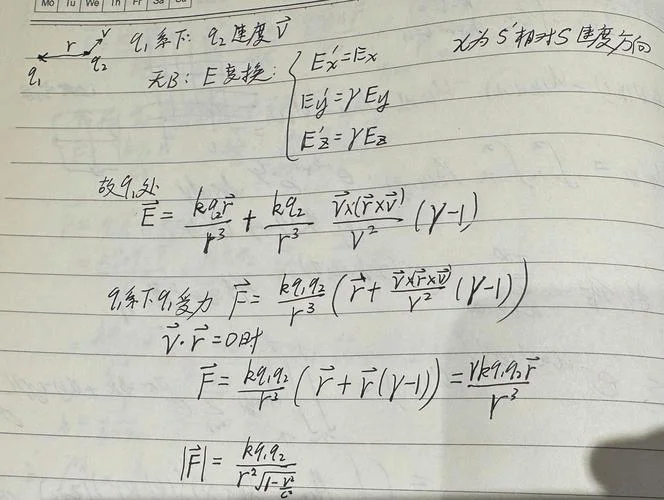 Mo Tu We Th Fr Sa Su
r v
q₁ q₂
q₁系下: q₂速度 \vec{v}
x为S'相对S速度方向
无B: E变换:
E'ₓ = Eₓ
E'y = γEy
E'z = γEz
故q₁处
\vec{E} = \frac{kq₂\vec{r}}{r³} + \frac{kq₂}{r³} \frac{\vec{v}×(\vec{r}×\vec{v})}{v²} (γ-1)
q₁系下q₁受力 \vec{F} = \frac{kq₁q₂}{r³} (\vec{r} + \frac{\vec{v}×(\vec{r}×\vec{v})}{v²} (γ-1))
\vec{v}·\vec{r} = 0时
\vec{F} = \frac{kq₁q₂}{r³} (\vec{r} + \vec{r}(γ-1)) = \frac{γkq₁q₂\vec{r}}{r³}
|\vec{F}| = \frac{kq₁q₂}{r²\sqrt{1-\frac{v²}{c²}}}